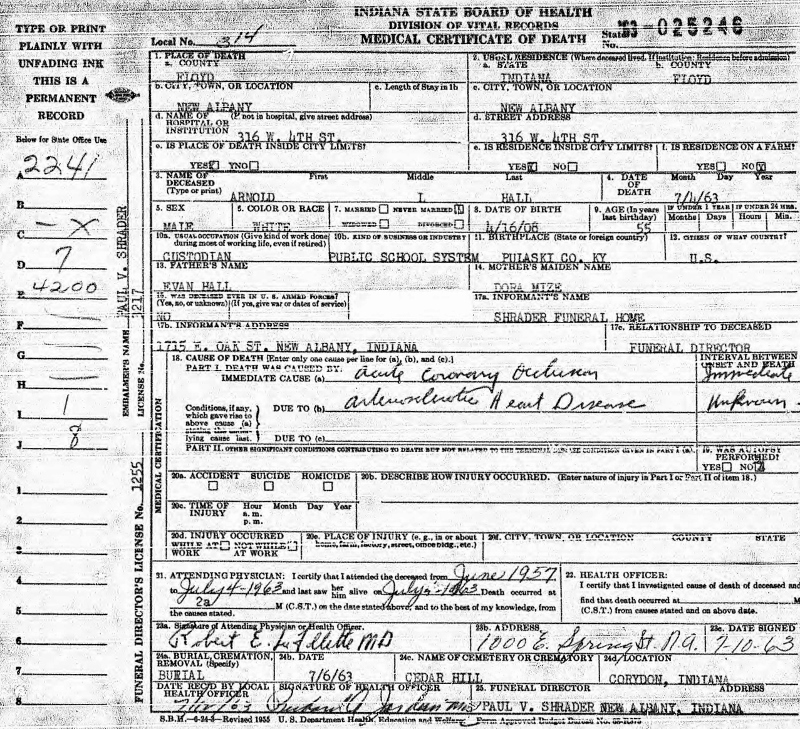 INDIANA STATE BOARD OF HEALTH
DIVISION OF VITAL RECORDS
MEDICAL CERTIFICATE OF DEATH
Local No. 314
State No. 63-025246
TYPE OR PRINT
PLAINLY WITH
UNFADING INK
THIS IS A
PERMANENT
RECORD
Below for State Office Use
A 2241
B
C -X
D 7
E 4200
F
G
H
I 1
J 8
1
2
3
4
5
6
7
8
EMBALMER'S NAME PAUL V. SHRADER
LICENSE No. 1217
FUNERAL DIRECTOR'S LICENSE No. 1255
1. PLACE OF DEATH
a. COUNTY
FLOYD
2. USUAL RESIDENCE (Where deceased lived. If institution: Residence before admission)
a. STATE b. COUNTY
INDIANA FLOYD
b. CITY, TOWN, OR LOCATION c. Length of Stay in 1b
NEW ALBANY
c. CITY, TOWN, OR LOCATION
NEW ALBANY
d. NAME OF (If not in hospital, give street address)
HOSPITAL OR
INSTITUTION 316 W. 4TH ST.
d. STREET ADDRESS
316 W. 4TH ST.
e. IS PLACE OF DEATH INSIDE CITY LIMITS?
YES X NO
e. IS RESIDENCE INSIDE CITY LIMITS?
YES X NO
f. IS RESIDENCE ON A FARM?
YES NO X
3. NAME OF First Middle Last
DECEASED
(Type or print) ARNOLD L HALL
4. DATE Month Day Year
OF
DEATH 7/4/63
5. SEX
MALE
6. COLOR OR RACE
WHITE
7. MARRIED NEVER MARRIED X
WIDOWED DIVORCED
8. DATE OF BIRTH
4/16/08
9. AGE (In years last birthday)
55
IF UNDER 1 YEAR IF UNDER 24 HRS.
Months Days Hours Min.
10a. USUAL OCCUPATION (Give kind of work done
during most of working life, even if retired)
CUSTODIAN
10b. KIND OF BUSINESS OR INDUSTRY
PUBLIC SCHOOL SYSTEM
11. BIRTHPLACE (State or foreign country)
PULASKI CO. KY
12. CITIZEN OF WHAT COUNTRY?
U.S.
13. FATHER'S NAME
EVAN HALL
14. MOTHER'S MAIDEN NAME
DORA MIZE
15. WAS DECEASED EVER IN U. S. ARMED FORCES?
(Yes, no, or unknown) (If yes, give war or dates of service)
NO
17a. INFORMANT'S NAME
SHRADER FUNERAL HOME
17b. INFORMANT'S ADDRESS
1715 E. OAK ST. NEW ALBANY, INDIANA
17c. RELATIONSHIP TO DECEASED
FUNERAL DIRECTOR
MEDICAL CERTIFICATION
18. CAUSE OF DEATH [Enter only one cause per line for (a), (b), and (c).]
PART I. DEATH WAS CAUSED BY:
IMMEDIATE CAUSE (a) Acute Coronary Occlusion
INTERVAL BETWEEN
ONSET AND DEATH
Immediate
Conditions, if any,
which gave rise to
above cause (a)
stating the under-
lying cause last.
DUE TO (b) Arteriosclerotic Heart Disease
Unknown
DUE TO (c)
PART II. OTHER SIGNIFICANT CONDITIONS CONTRIBUTING TO DEATH BUT NOT RELATED TO THE TERMINAL DISEASE CONDITION GIVEN IN PART I (a).
19. WAS AUTOPSY
PERFORMED?
YES NO X
20a. ACCIDENT SUICIDE HOMICIDE
20b. DESCRIBE HOW INJURY OCCURRED. (Enter nature of injury in Part I or Part II of item 18.)
20c. TIME OF Hour Month Day Year
INJURY a. m.
p. m.
20d. INJURY OCCURRED
WHILE AT NOT WHILE
WORK AT WORK
20e. PLACE OF INJURY (e. g., in or about
home, farm, factory, street, office bldg., etc.)
20f. CITY, TOWN, OR LOCATION COUNTY STATE
21. ATTENDING PHYSICIAN: I certify that I attended the deceased from June 1957
to July 4-1963 and last saw her him alive on Death occurred at
M (C.S.T.) on the date stated above, and to the best of my knowledge, from
the causes stated.
22. HEALTH OFFICER:
I certify that I investigated cause of death of deceased and
find that death occurred at M
(C.S.T.) from causes stated and on above date.
23a. Signature of Attending Physician or Health Officer.
Robert E. LaFollette MD
23b. ADDRESS
1000 E. Spring St. N.A.
23c. DATE SIGNED
7-10-63
24a. BURIAL, CREMATION,
REMOVAL (Specify)
BURIAL
24b. DATE
7/6/63
24c. NAME OF CEMETERY OR CREMATORY
CEDAR HILL
24d. LOCATION
CORYDON, INDIANA
DATE REC'D BY LOCAL
HEALTH OFFICER
7/12/63
SIGNATURE OF HEALTH OFFICER
25. FUNERAL DIRECTOR ADDRESS
PAUL V. SHRADER NEW ALBANY, INDIANA
S.B.H.-6-24-3-Revised 1955 U. S. Department Health, Education and Welfare Form Approved Budget Bureau No.